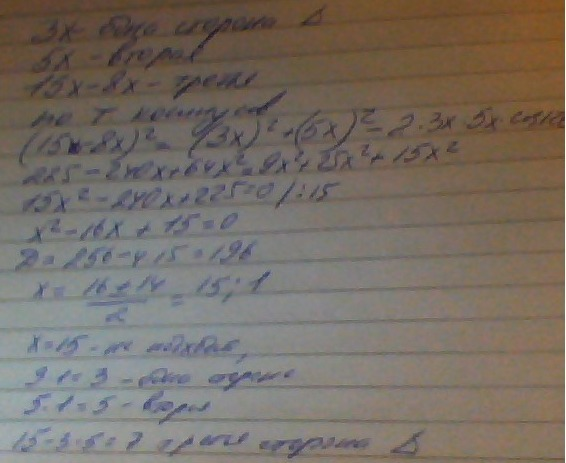 3x - одна сторона Δ
5x - вторая
15x-8x - третья
по т косинусов
(15x-8x)² = (3x)² + (5x)² - 2·3x·5x cos120
225 - 240x + 64x² = 9x² + 25x² + 15x²
15x² - 240x + 225 = 0 /:15
x² - 16x + 15 = 0
D = 256 - 4·15 = 196
x = 16±14/2 = 15; 1
x = 15 - не подход,
3·1=3 - одна сторона
5·1=5 - вторая
15-3-5=7 третья сторона Δ